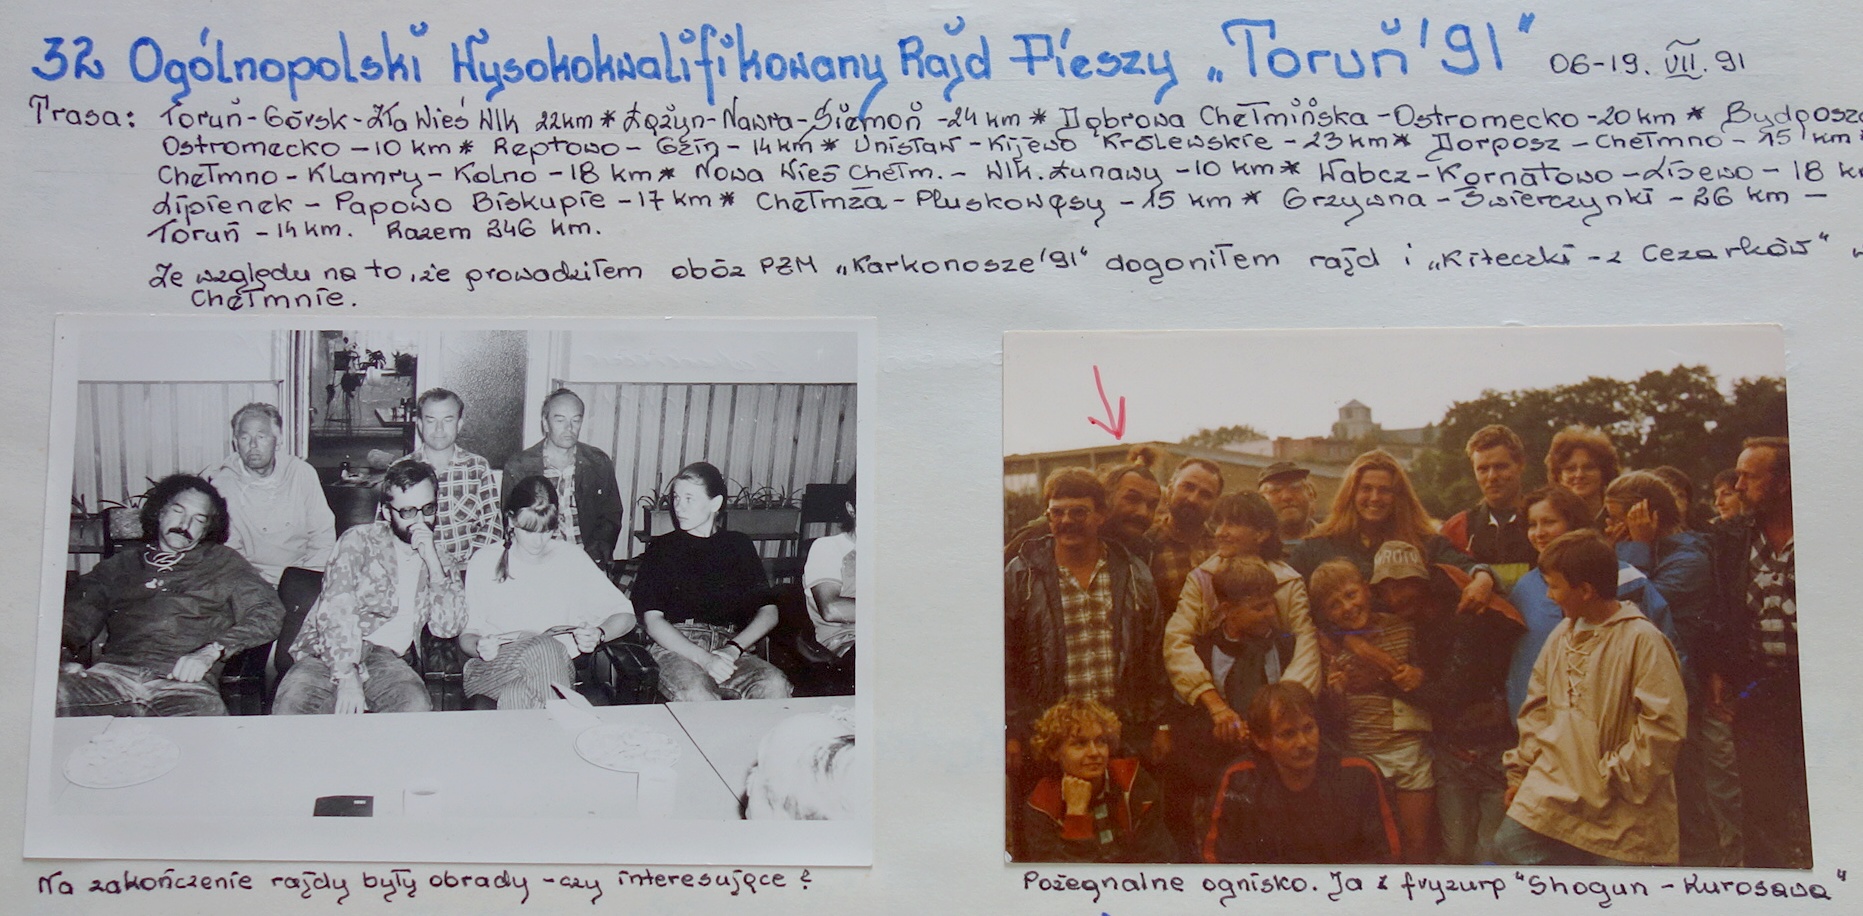 32 Ogólnopolski Wysokokwalifikowany Rajd Pieszy „Toruń '91" 06-19. VII. 91
Trasa: Toruń - Górsk - Zła Wieś Wlk 22km * Łążyn - Nawra - Siemoń - 24 km * Dąbrowa Chełmińska - Ostromecko - 20 km *
Ostromecko - 10 km * Reptowo - Gzin - 14km * Unisław - Kijewo Królewskie - 23 km * Dorposz - Chełmno - 15 km
Chełmno - Klamry - Kolno - 18 km * Nowa Wieś Chełm. - Wlk. Łunawy - 10 km * Wabcz - Kornatowo - Lisewo - 18
Lipienek - Papowo Biskupie - 17 km * Chełmża - Pluskowęsy - 15 km * Grzywna - Świerczynki - 26 km -
Toruń - 14 km. Razem 246 km.
Ze względu na to, że prowadziłem obóz PZM „Karkonosze '91" dogoniłem rajd i „Kiteczki - z Cezarków"
Chełmnie.
GROIN
Na zakończenie rajdy były obrady - czy interesujące?
Pożegnalne ognisko. Ja z fryzurą "Shogun - Kurosawa"